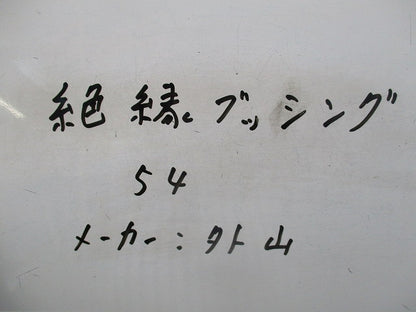 絶縁ブッシング
54
メーカー:外山